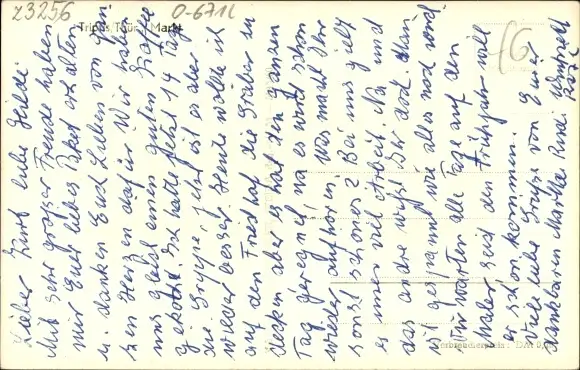 23256
0-6711
Triptis/Thür., Markt
Lieber Kurt liebe Hilde.
Mit sehr großer Freude haben
wir Euer liebes Paket erhalten
u. danken Euch Lieben von gan-
zen Herzen dafür. Wir haben
uns gleich einen guten Kaffee
gekocht. Ich hatte jetzt 14 Tage
die Grippe, jetzt ist es aber
wieder besser. Heute wollte ich
auf den Friedhof die Gräber zu
decken aber es hat den ganzen
Tag geregnet na es wird schon
wieder aufhören. Was macht Ihr
sonst schönes? Bei uns gibt
es immer viel Arbeit. Na und
das andre wißt Ihr doch. Man
ist gespannt wie alles noch wird.
Wir warten alle Tage auf den
Maler seid den Frühjahr will
er schon kommen.
Viele liebe Grüße von Eurer
dankbaren Martha Rosi
16
Verbraucherpreis: DM 0,